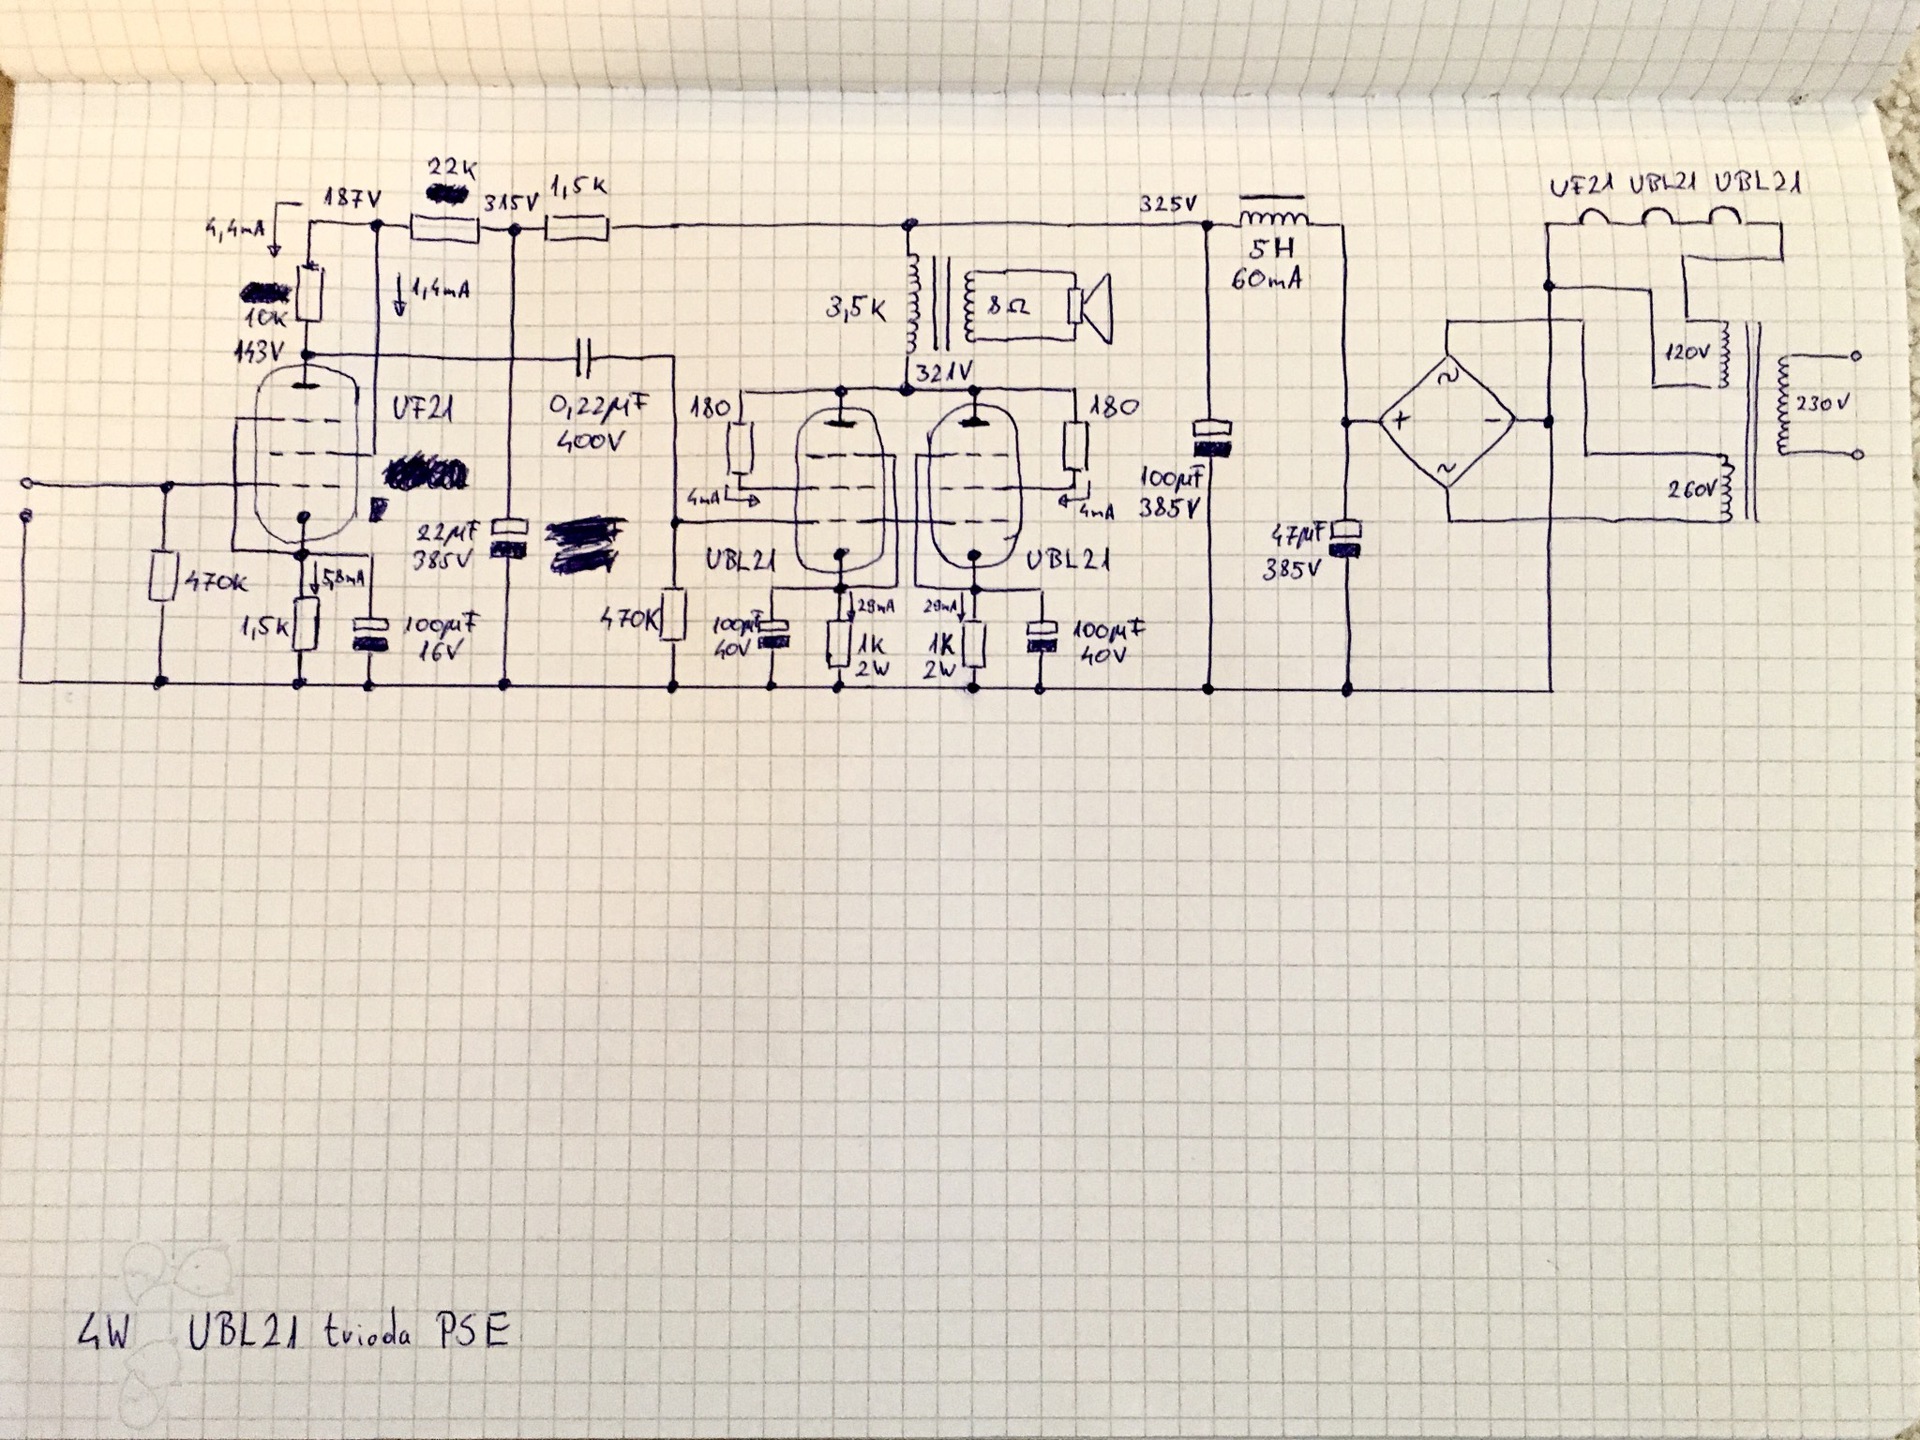 22K
187V
315V
1,5K
4,4mA
10K
1,4mA
143V
UF21
0,22μF
400V
22μF
385V
470K
5,8mA
1,5K
100μF
16V
470K
3,5K
8Ω
321V
180
180
4mA
4mA
UBL21
UBL21
29mA
29mA
100μF
40V
1K
2W
1K
2W
100μF
40V
325V
5H
60mA
100μF
385V
47μF
385V
UF21 UBL21 UBL21
+
~
-
~
120V
260V
230V
4W UBL21 trioda PSE